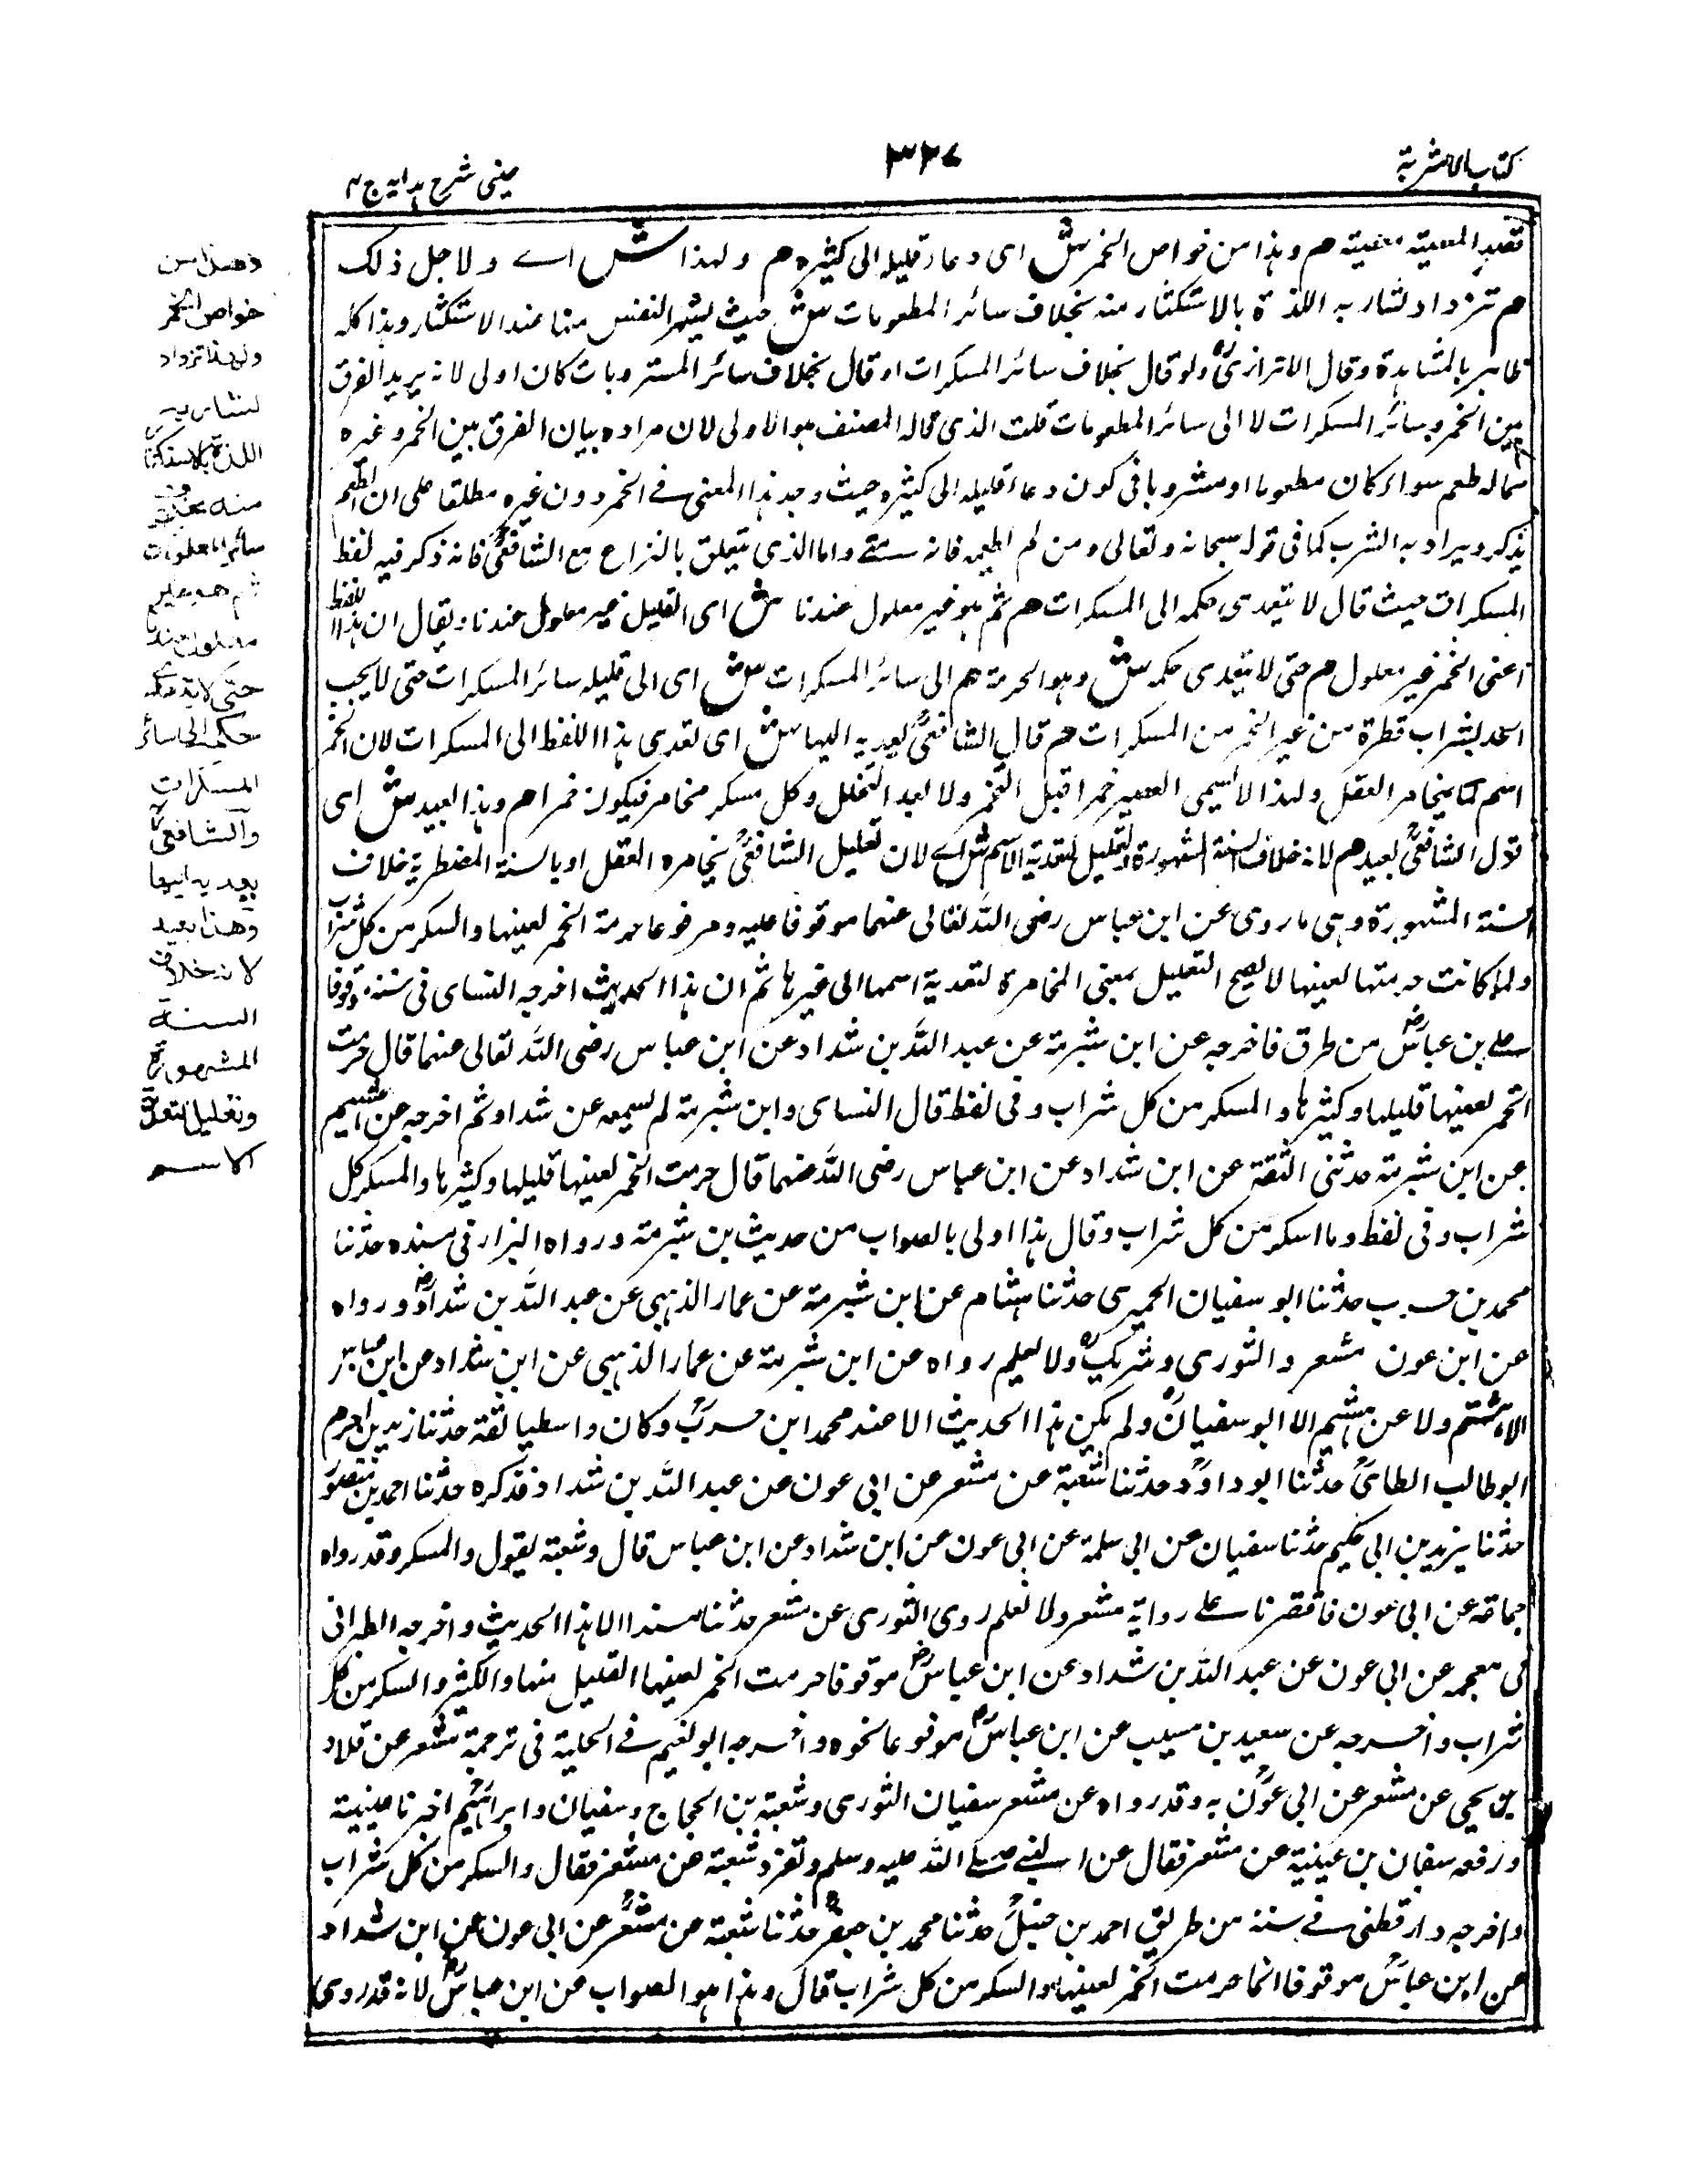 كتاب الاشربة
٣٢٧
عينى شرح هدايه ج ٤
م وهذا من خواص الخمر ش اى دعاء قليله الى كثيره م ولهذا ش اے ولاجل ذلك
م تزداد لشاربه اللذة بالاستكثار منه بخلاف سائر المطعومات ش حيث النفس منها عند الاستكثار وهذا كله
ظاهر بالمشاهدة وقال الاترازى ولو قال بخلاف سائر المسكرات او قال بخلاف سائر المشروبات كان اولى لانه يريد الفرق
بين الخمر وسائر المسكرات لا الى سائر المطعومات قلت الذى قاله المصنف هو الاولى لان مراده بيان الفرق بين الخمر وغيره
مماله طعم سواء كان مطعوما او مشروبا فى كون دعاء قليله الى كثيره حيث وجد هذا المعنى فے الخمر دون غيره مطلقا على ان الطعم
يذكر ويراد به الشرب كما فى قوله سبحانه وتعالى ومن لم يطعمه فانه منے واما الذى يتعلق بالنزاع مع الشافعى فانه ذكر فيه لفظ
المسكرات حيث قال لا يتعدى حكمه الى المسكرات م ثم هو غير معلول عندنا ش اى القليل غير معلول عندنا ويقال ان هذا اللفظ
اعنى الخمر غير معلول م حتى لا يتعدى حكمه ش وهو الحرمة م الى سائر المسكرات ش اى الى قليله سائر المسكرات حتى لا يجب
الحد بشراب قطرة من غير الخمر من المسكرات م قال الشافعى يعديه اليها ش اى تعدى هذا اللفظ الى المسكرات لان الخمر
اسم لما يخامر العقل ولهذا لا يسمى العصير خمرا قبل التخمر ولا بعد التخلل وكل مسكر مخامر فيكون خمرا م وهذا بعيد ش اى
قول الشافعى بعيد م لانه خلاف السنة المشهورة والتعليل لتعدية الاسم ش اے لان تعليل الشافعى بمخامرة العقل او بالسنة المضطربة خلاف
السنة المشهورة وهى ما روى عن ابن عباس رضى الله تعالى عنهما موقوفا عليه ومرفوعا حرمة الخمر لعينها والسكر من كل شراب
ولما كانت حرمتها لعينها لا يصح التعليل بمعنى المخامرة لتعدية اسمها الى غيرها ثم ان هذا الحديث اخرجه النسائى فى سننه موقوفا
علے بن عباس من طرق فاخرجه عن ابن شبرمة عن عبد الله بن شداد عن ابن عباس رضى الله تعالى عنهما قال حرمت
الخمر لعينها قليلها وكثيرها والسكر من كل شراب وفى لفظ قال النسائى وابن شبرمة لم يسمعه عن شداد ثم اخرجه عن هشيم
عن ابن شبرمة حدثنى الثقة عن ابن شداد عن ابن عباس رضى الله عنهما قال حرمت الخمر لعينها قليلها وكثيرها والمسكر كل
شراب وفى لفظ وما اسكر من كل شراب وقال هذا اولى بالصواب من حديث بن شبرمة ورواه البزار فى مسنده حدثنا
محمد بن حرب حدثنا ابو سفيان الحميرى حدثنا هشام عن ابن شبرمة عن عمار الذهبى عن عبد الله بن شداد ورواه
عن ابن عون مشعر والثورى وشريك ولا نعلم رواه عن ابن شبرمة عن عمار الذهبى عن ابن شداد عن ابن عباس
الا هشيم ولا عن هشيم الا ابو سفيان ولم يكن هذا الحديث الا عند محمد ابن حرب وكان واسطيا ثقة حدثنا زيد بن اخرم
ابو طالب الطائى حدثنا ابو داود حدثنا شعبة عن مشعر عن ابى عون عن عبد الله بن شداد فذكره حدثنا احمد بن منصور
حدثنا يزيد بن ابى حكيم حدثنا سفيان عن ابى سلمة عن ابى عون عن ابن شداد عن ابن عباس قال وشعبة يقول والمسكر وقد رواه
جماعة عن ابى عون فاقتصرنا علے رواية مشعر ولا نعلم روى الثورى عن مشعر حدثنا مسندا الا هذا الحديث واخرجه الطبرانى
فى معجمه عن ابى عون عن عبد الله بن شداد عن ابن عباس موقوفا حرمت الخمر لعينها القليل منها والكثير والسكر من كل
شراب واخرجه عن سعيد بن مسيب عن ابن عباس موفوعا نحوه واخرجه ابو نعيم فے الحلية فى ترجمة مشعر عن خلاد
بن يحيى عن مشعر عن ابى عون به وقد رواه عن مشعر سفيان الثورى وشعبة بن الحجاج وسفيان وابراهيم اخبرنا عيينة
ورفعه سفيان بن عيينة عن مشعر فقال عن النبے صلے الله عليه وسلم وتفرد شعبة عن مشعر فقال والسكر من كل شراب
واخرجه دارقطنى فے سننه من طريق احمد بن حنبل حدثنا محمد بن جعفر حدثنا شعبة عن مشعر عن ابى عون عن ابن شداد
عن ابن عباس موقوفا انما حرمت الخمر لعينها والسكر من كل شراب قال وهذا هو الصواب عن ابن عباس لانه قد روى
وهذا من
خواص الخمر
ولهذا تزداد
لشاربه
اللذة بالاستكثار
منه بخلاف
سائر المطعومات
ثم هو غير
معلول عندنا
حتى لا يتعدى
حكمه الى سائر
المسكرات
والشافعى
يعديه اليها
وهذا بعيد
لانه خلاف
السنة
المشهورة
وتعليل لتعدية
الاسم